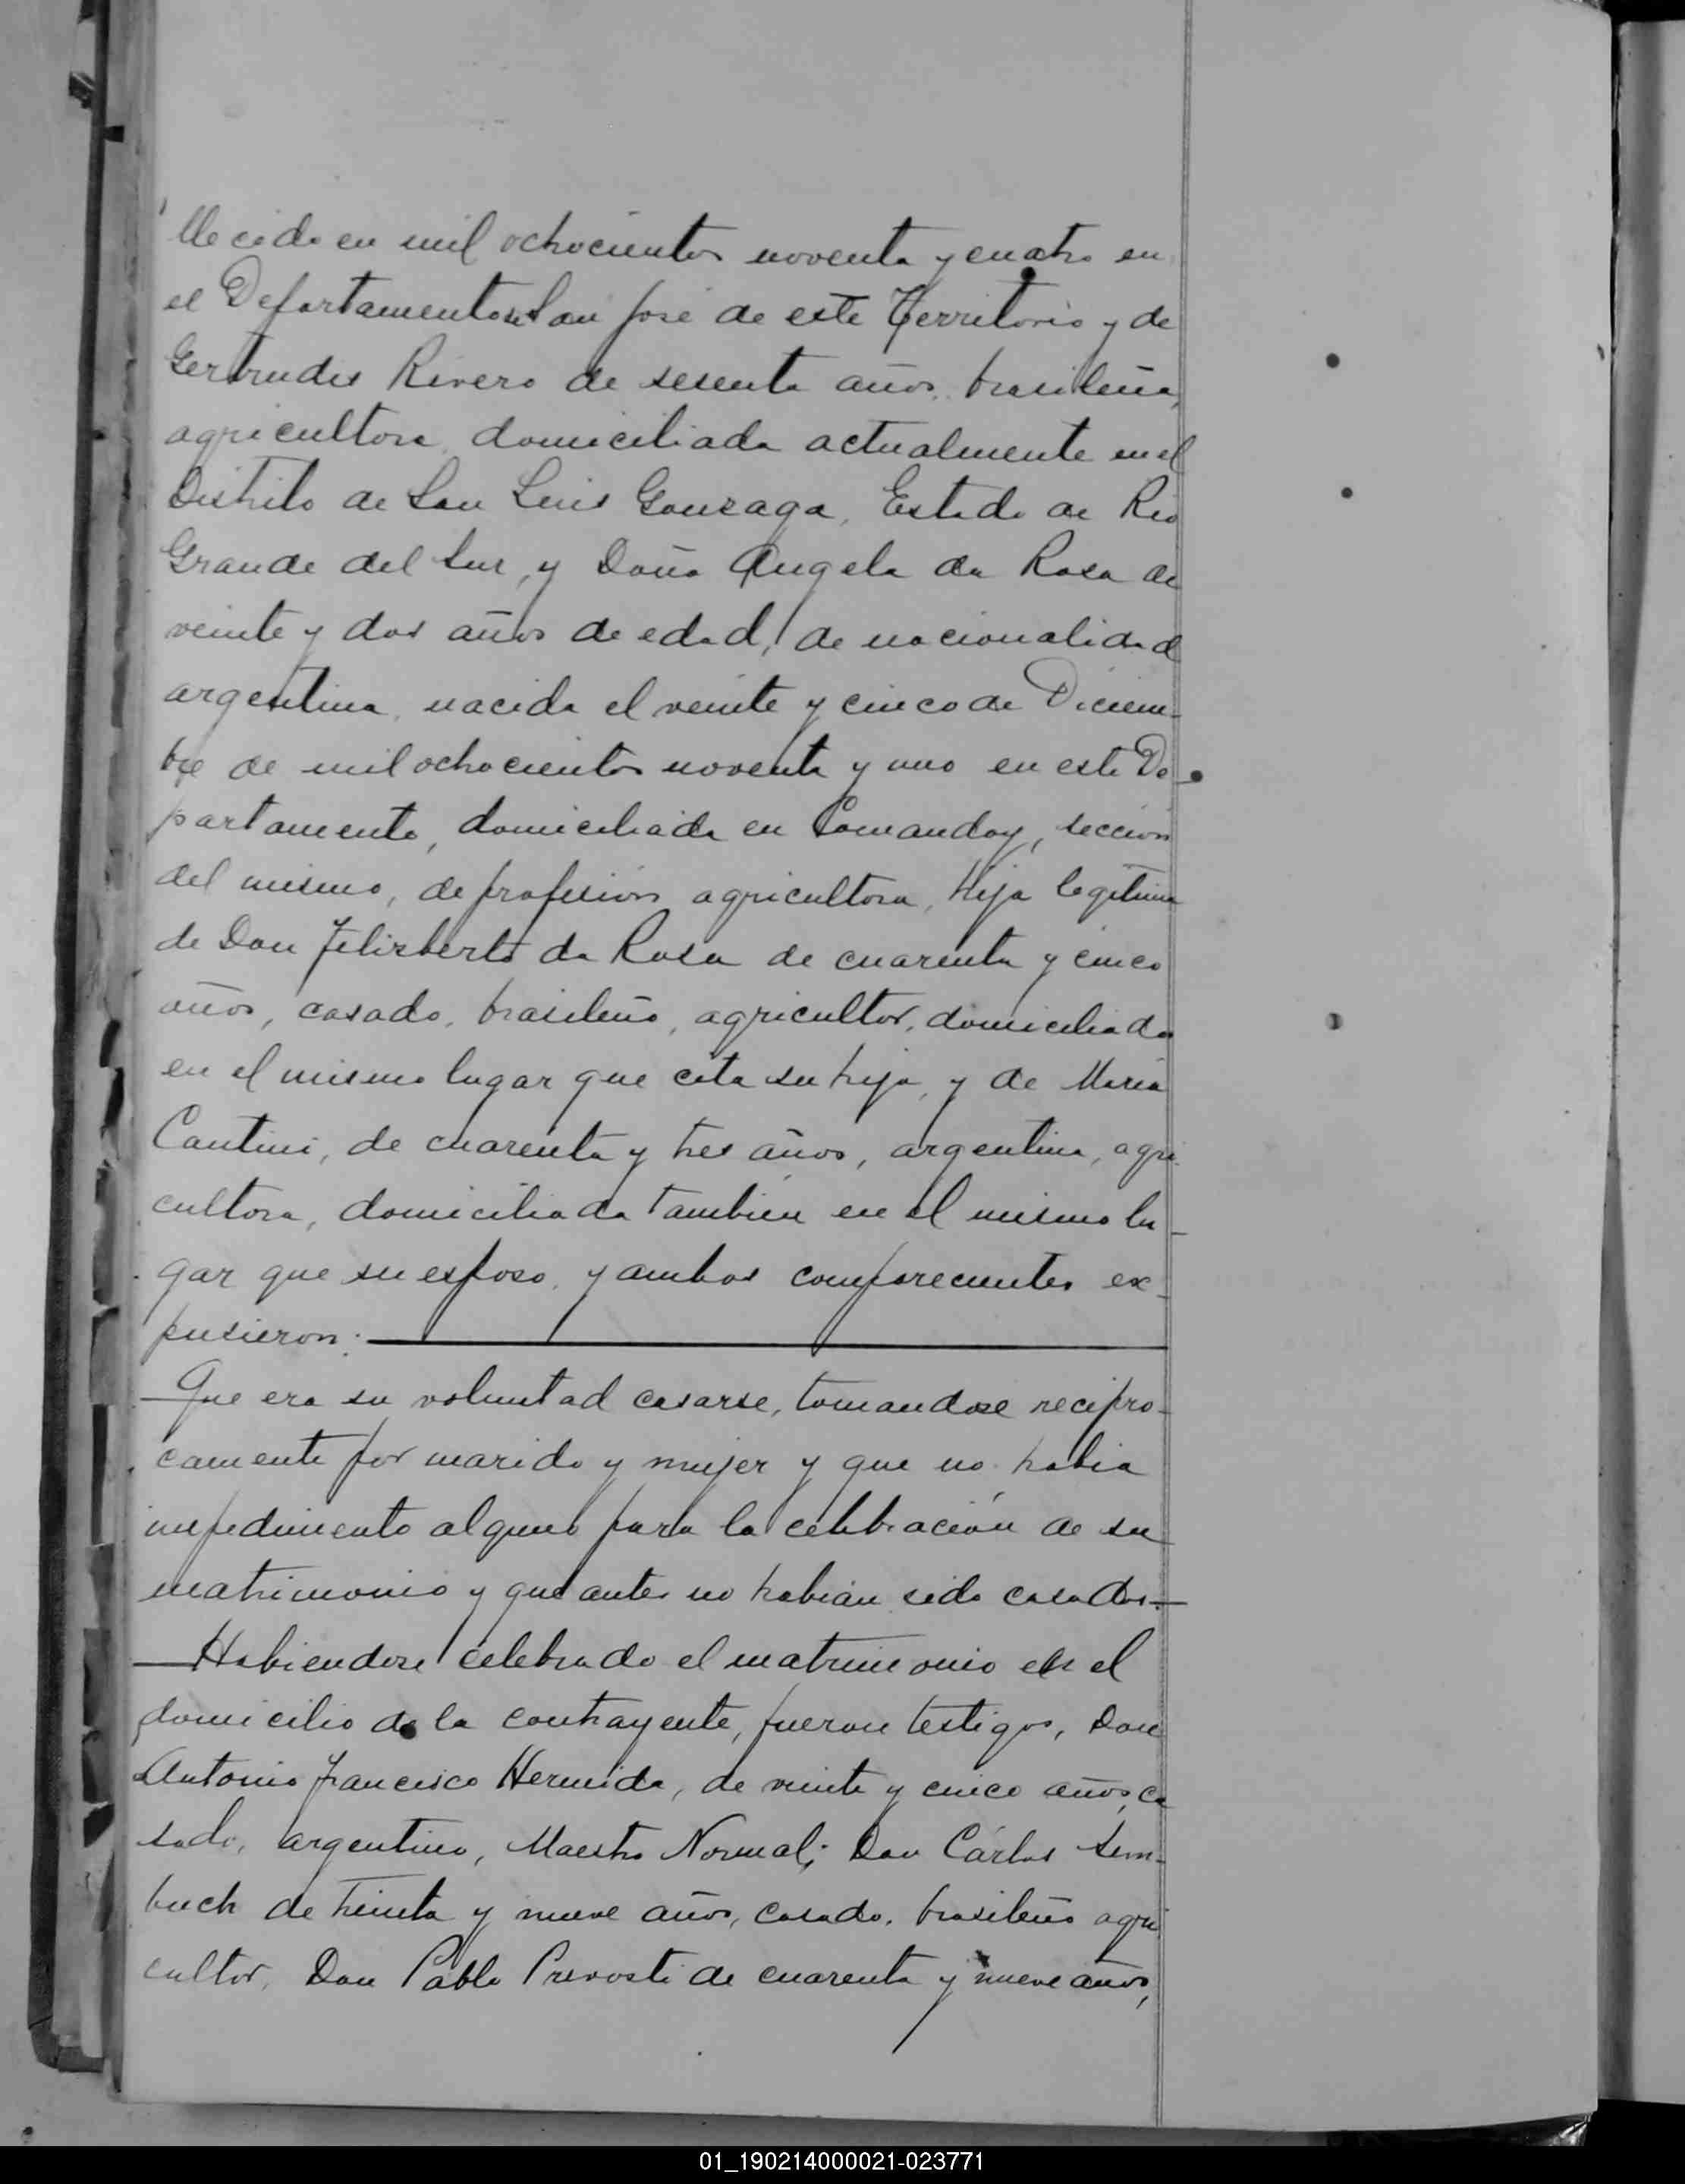 llecido en mil ochocientos noventa y cuatro en
el Departamento de San José de este Territorio y de
Gertrudis Rivero de sesenta años, brasileña,
agricultora, domiciliada actualmente en el
Distrito de San Luis Gonzaga, Estado de Rio
Grande del Sur, y Doña Angela da Rosa de
veinte y dos años de edad, de nacionalidad
argentina, nacida el veinte y cinco de Diciem-
bre de mil ochocientos noventa y uno en este De-
partamento, domiciliada en Comanday, sección
del mismo, de profesión agricultora, hija legítima
de Don Felisberto da Rosa de cuarenta y cinco
años, casado, brasileño, agricultor, domiciliado
en el mismo lugar que cita su hija, y de María
Cantini, de cuarenta y tres años, argentina, agri-
cultora, domiciliada también en el mismo lu-
gar que su esposo, y ambos comparecientes ex-
pusieron:
Que era su voluntad casarse, tomandose recipro-
camente por marido y mujer y que no habia
impedimento alguno para la celebración de su
matrimonio y que antes no habian sido casados.
Habiendose celebrado el matrimonio en el
domicilio de la contrayente, fueron testigos, Don
Antonio Francisco Hermida, de veinte y cinco años, ca
sado, argentino, Maestro Normal; Don Cárlos Sem-
buch de treinta y nueve años, casado, brasileño agri
cultor, Don Pablo Prevosti de cuarenta y nueve años,
01_190214000021-023771